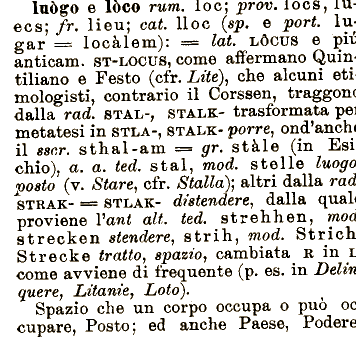 luògo e lòco rum. loc; prov. locs, lu-
ecs; fr. lieu; cat. lloc (sp. e port. lu-
gar = locàlem): = lat. LÒCUS e più
anticam. ST-LOCUS, come affermano Quin-
tiliano e Festo (cfr. Lite), che alcuni eti-
mologisti, contrario il Corssen, traggono
dalla rad. STAL-, STALK- trasformata per
metatesi in STLA-, STALK- porre, ond'anche
il sscr. sthal-am = gr. stàle (in Esi-
chio), a. a. ted. stal, mod. stelle luogo,
posto (v. Stare, cfr. Stalla); altri dalla rad.
STRAK- = STLAK- distendere, dalla quale
proviene l'ant alt. ted. strehhen, mod.
strecken stendere, strih, mod. Strich,
Strecke tratto, spazio, cambiata R in L
come avviene di frequente (p. es. in Delin-
quere, Litanie, Loto).
Spazio che un corpo occupa o può oc-
cupare, Posto; ed anche Paese, Podere